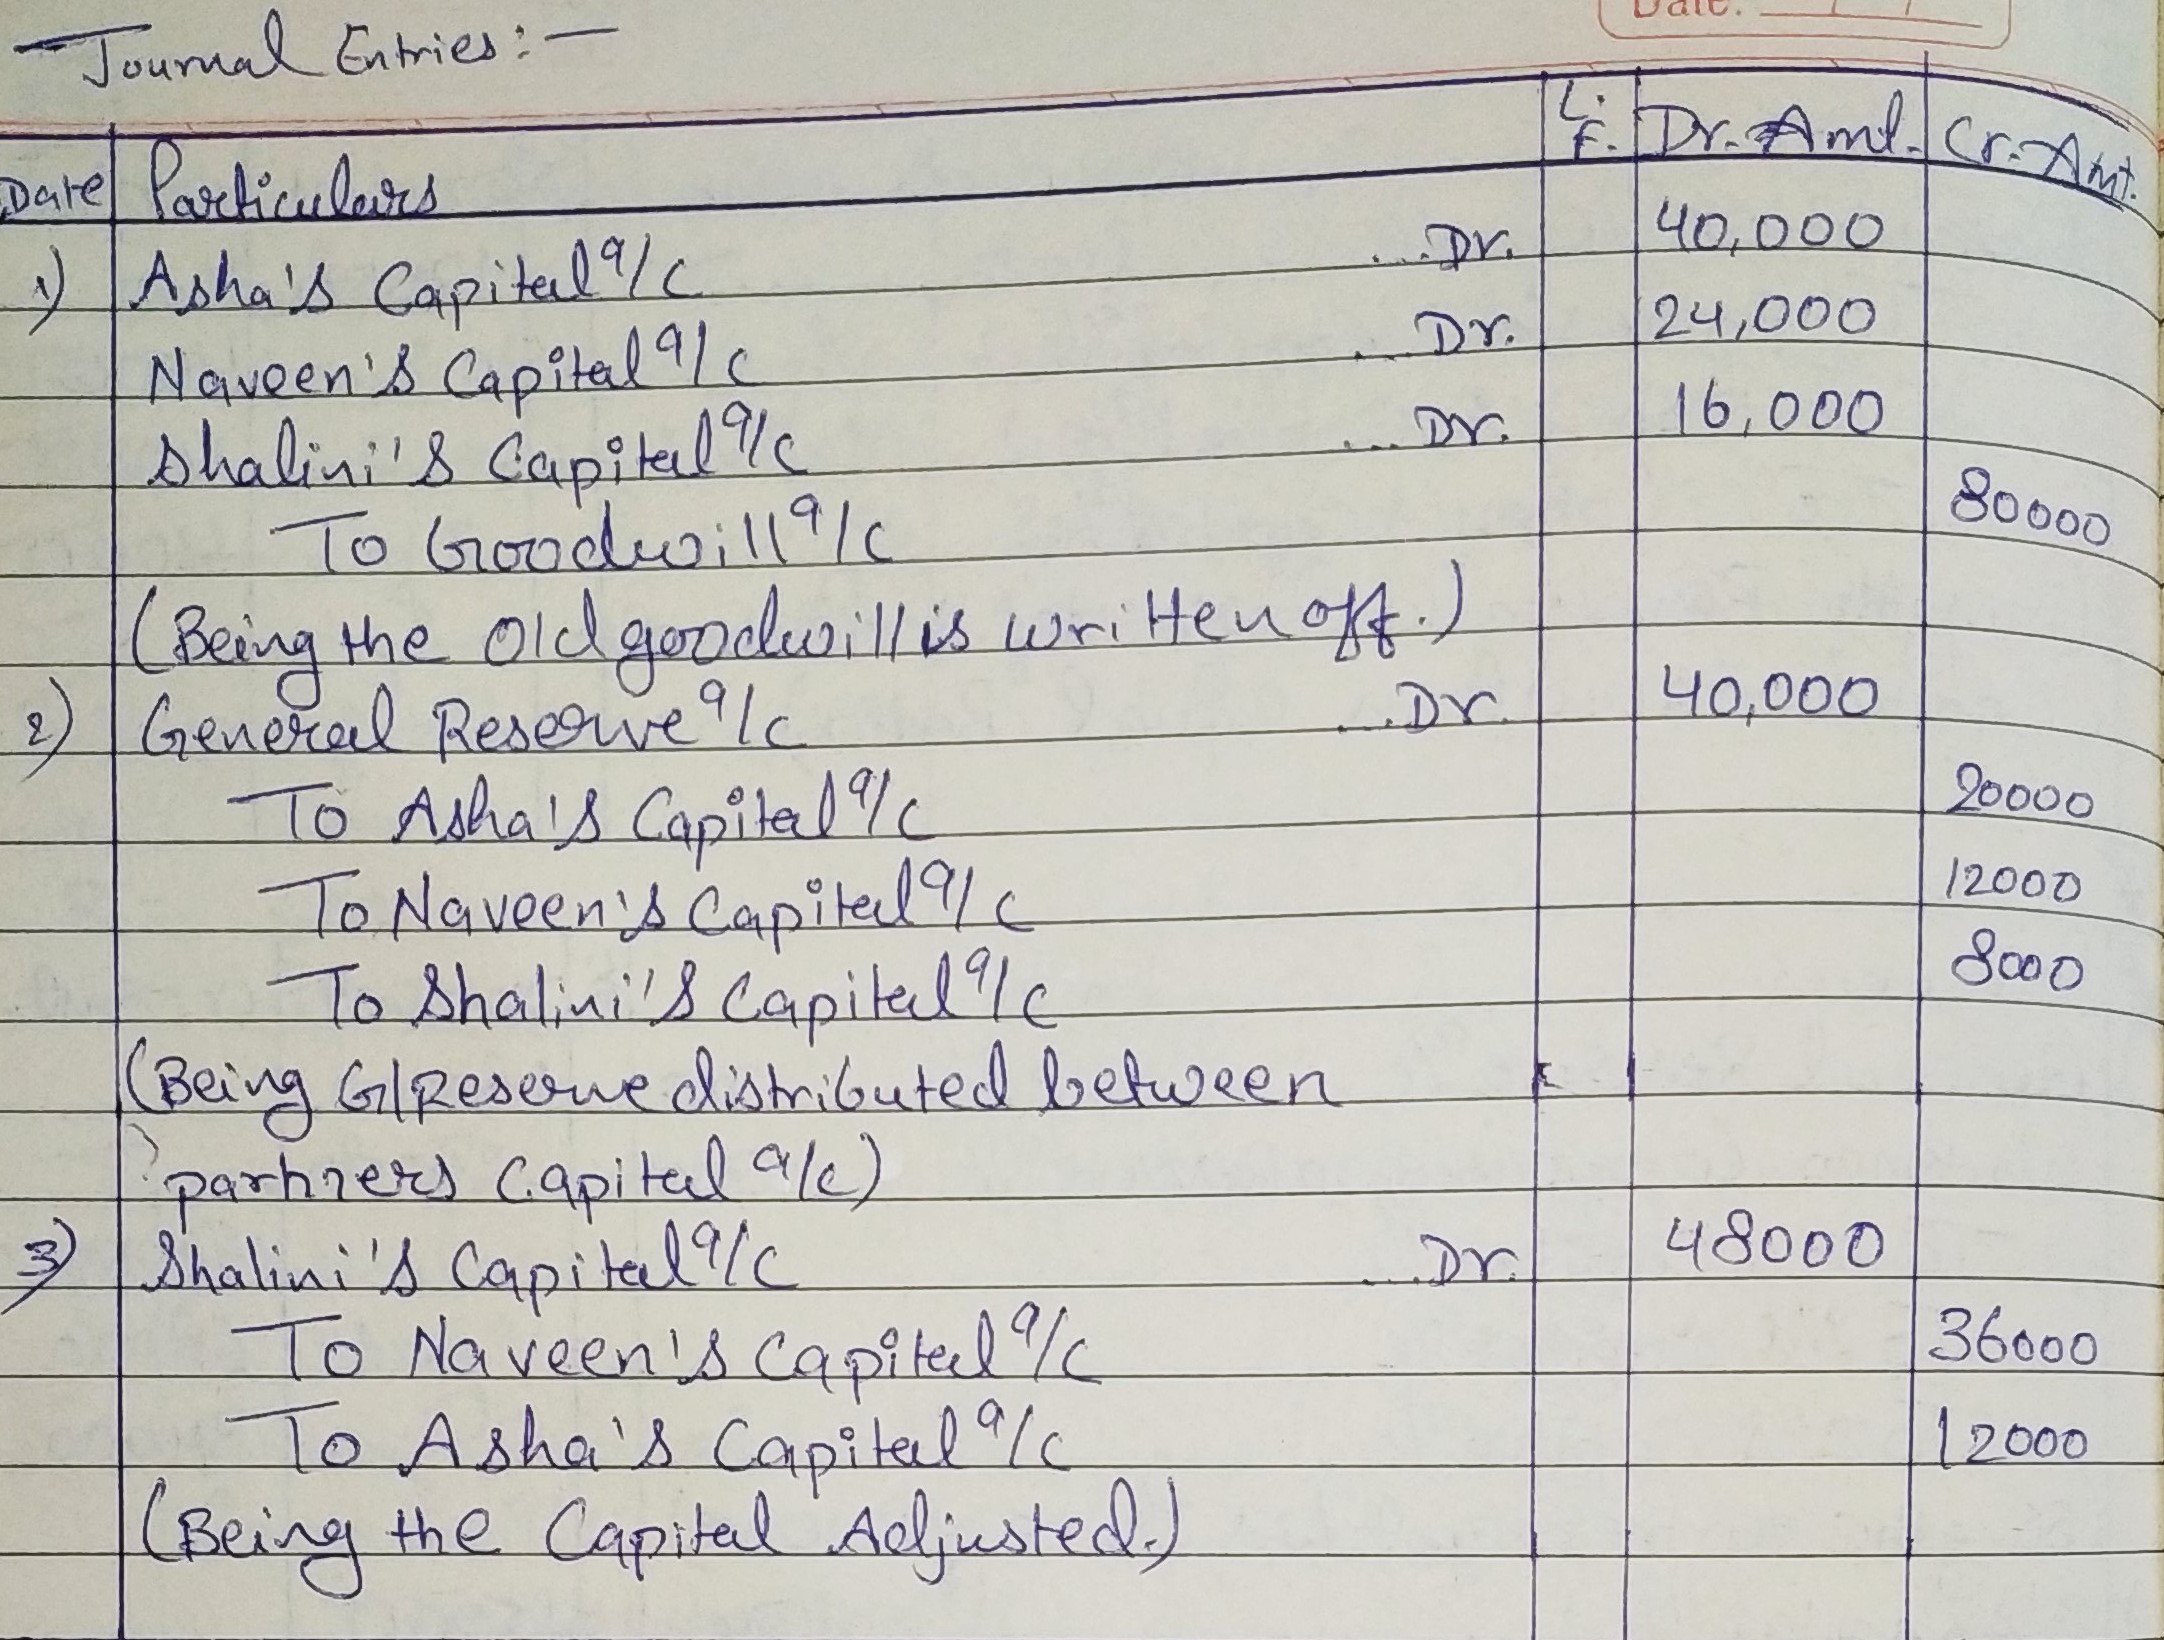 Date:
Journal Entries:-
Date Particulars L.F. Dr. Amt. Cr. Amt.
1) Asha's Capital a/c ...Dr. 40,000
Naveen's Capital a/c ...Dr. 24,000
Shalini's Capital a/c ...Dr. 16,000
To Goodwill a/c 80000
(Being the old goodwill is written off.)
2) General Reserve a/c ...Dr. 40,000
To Asha's Capital a/c 20000
To Naveen's Capital a/c 12000
To Shalini's Capital a/c 8000
(Being G/Reserve distributed between
partners Capital a/c)
3) Shalini's Capital a/c ...Dr. 48000
To Naveen's Capital a/c 36000
To Asha's Capital a/c 12000
(Being the Capital Adjusted.)